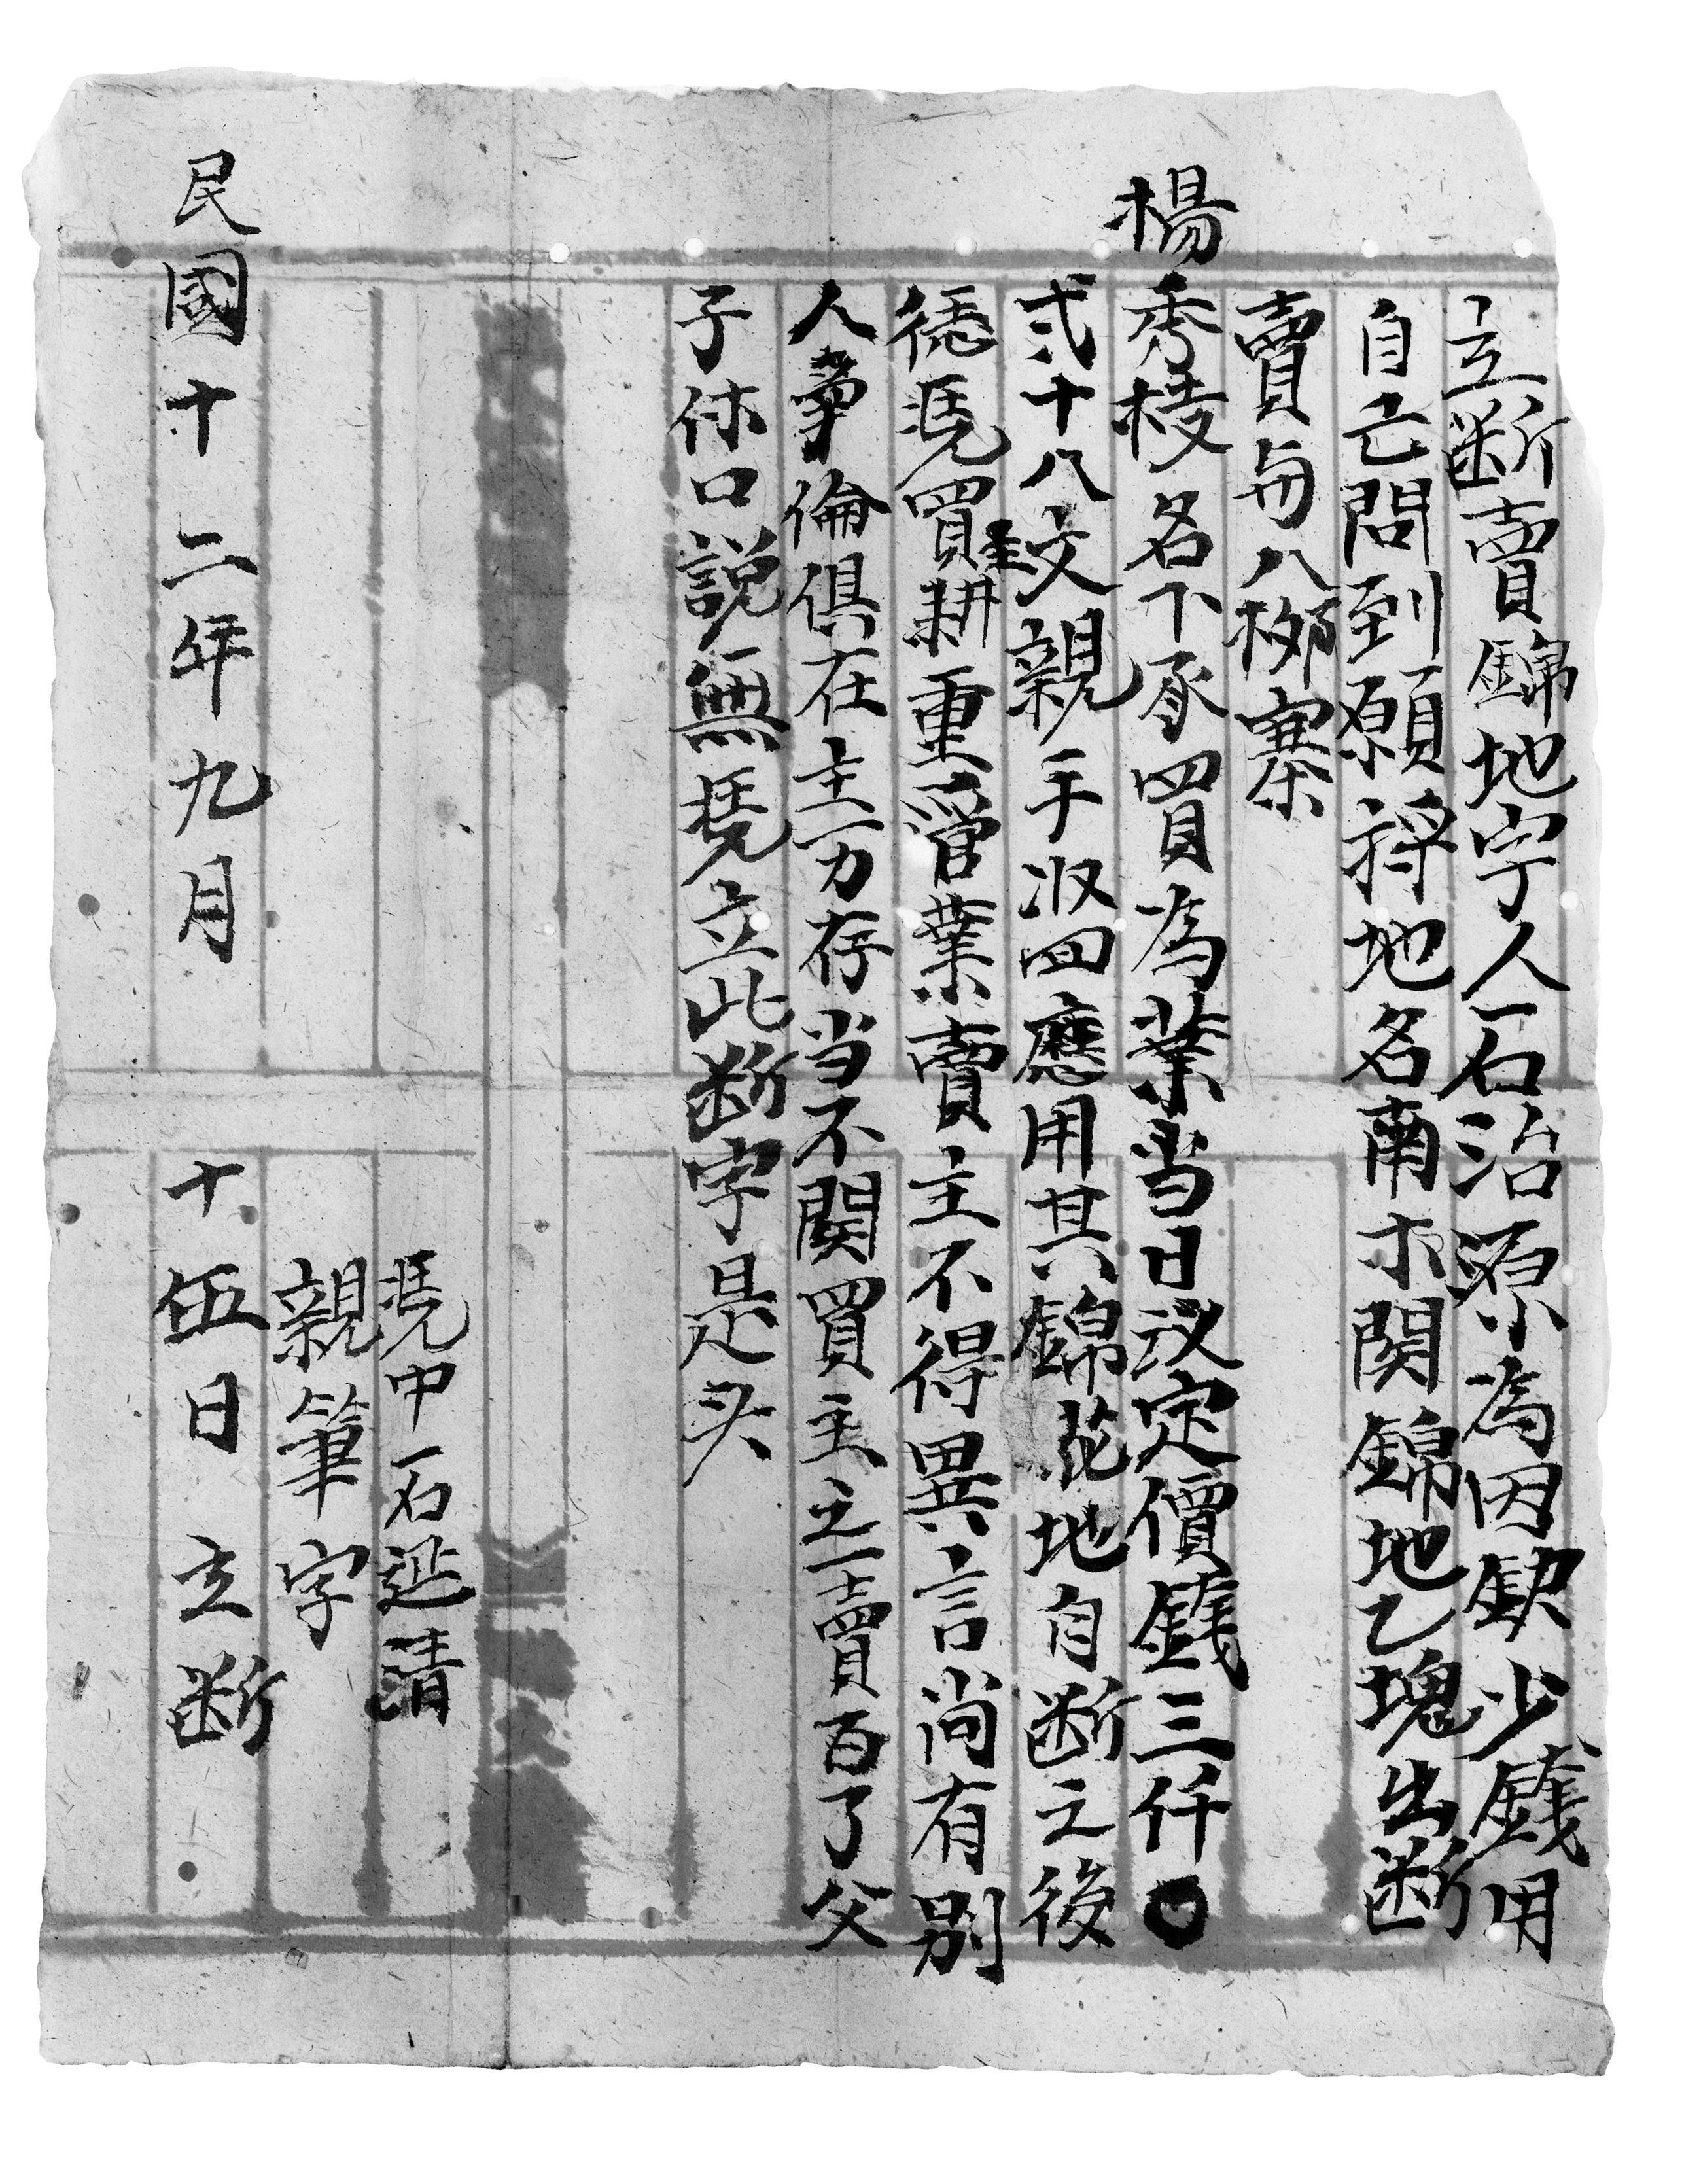 立断賣錦地字人石治源為因缺少錢用
自己問到願将地名南木関錦地乙塊出断
賣與八梛寨
楊秀棱名下承買為業当日议定價錢三仟〇
弍十八文親手收回應用其錦花地自断之後
憑買主耕重管業賣主不得異言尚有別
人争倫俱在主一力存当不関買主之賣百了父
子休口説無凭立此断字是头
凴中石延清
親筆字
民國十二年九月十伍日立断